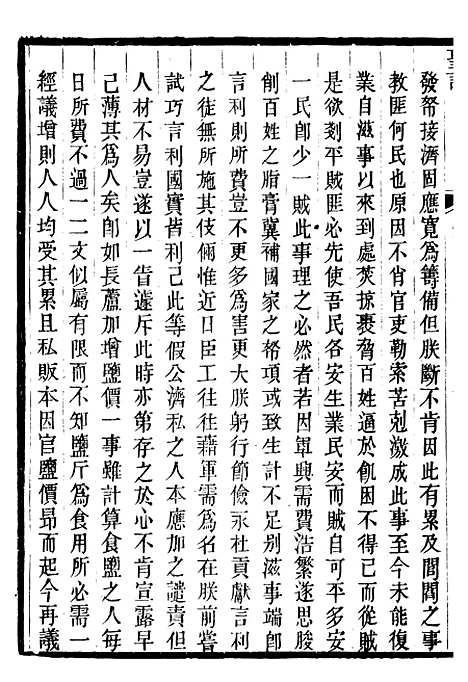 發帑接濟固應寬爲籌備但朕斷不肯因此有累及閭閻之事
教匪何民也原因不肖官吏勒索苦剋激成此事至今未能復
業自滋事以來到處焚掠裹脅百姓逼於飢困不得已而從賊
是欲剗平賊匪必先使吾民各安生業民安而賊自可平多安
一民卽少一賊此事理之必然者若因軍興需費浩繁遂思朘
削百姓之脂膏冀補國家之帑項或致生計不足别滋事端卽
言利則所費豈不更多爲害更大朕躬行節儉永杜貢獻言利
之徒無所施其伎倆惟近日臣工往往藉軍需爲名在朕前嘗
試巧言利國實皆利己此等假公濟私之人本應加之譴責但
人材不易豈遂以一眚遽斥此時亦第存之於心不肯宣露早
己薄其爲人矣卽如長蘆加增鹽價一事雖計算食鹽之人每
日所費不過一二文似屬有限而不知鹽斤爲食用所必需一
經議增則人人均受其累且私販本因官鹽價昂而起今再議